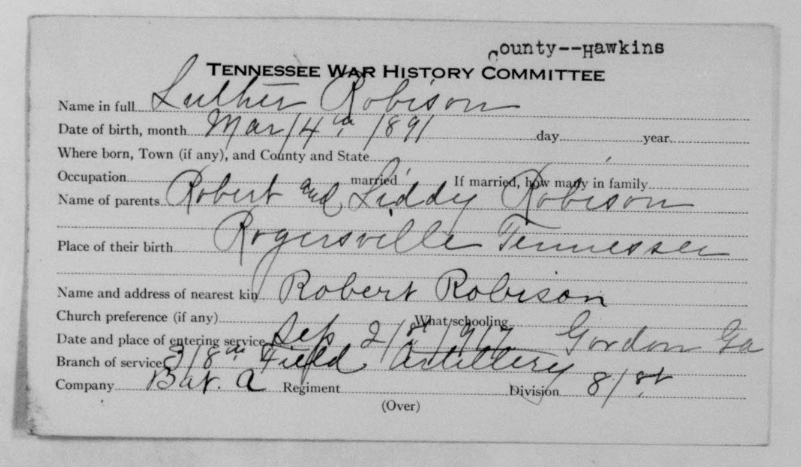 County--Hawkins
TENNESSEE WAR HISTORY COMMITTEE
Name in full Luther Robison
Date of birth, month Mar 14th, 1891 day year
Where born, Town (if any), and County and State
Occupation married If married, how many in family
Name of parents Robert and Liddy Robison
Rogersville Tennessee
Place of their birth
Name and address of nearest kin Robert Robison
Church preference (if any) What schooling
Date and place of entering service Sep 21st 1917 Gordon Ga
Branch of service 318th Field Artillery
Company Bat. A Regiment Division 81st
(Over)